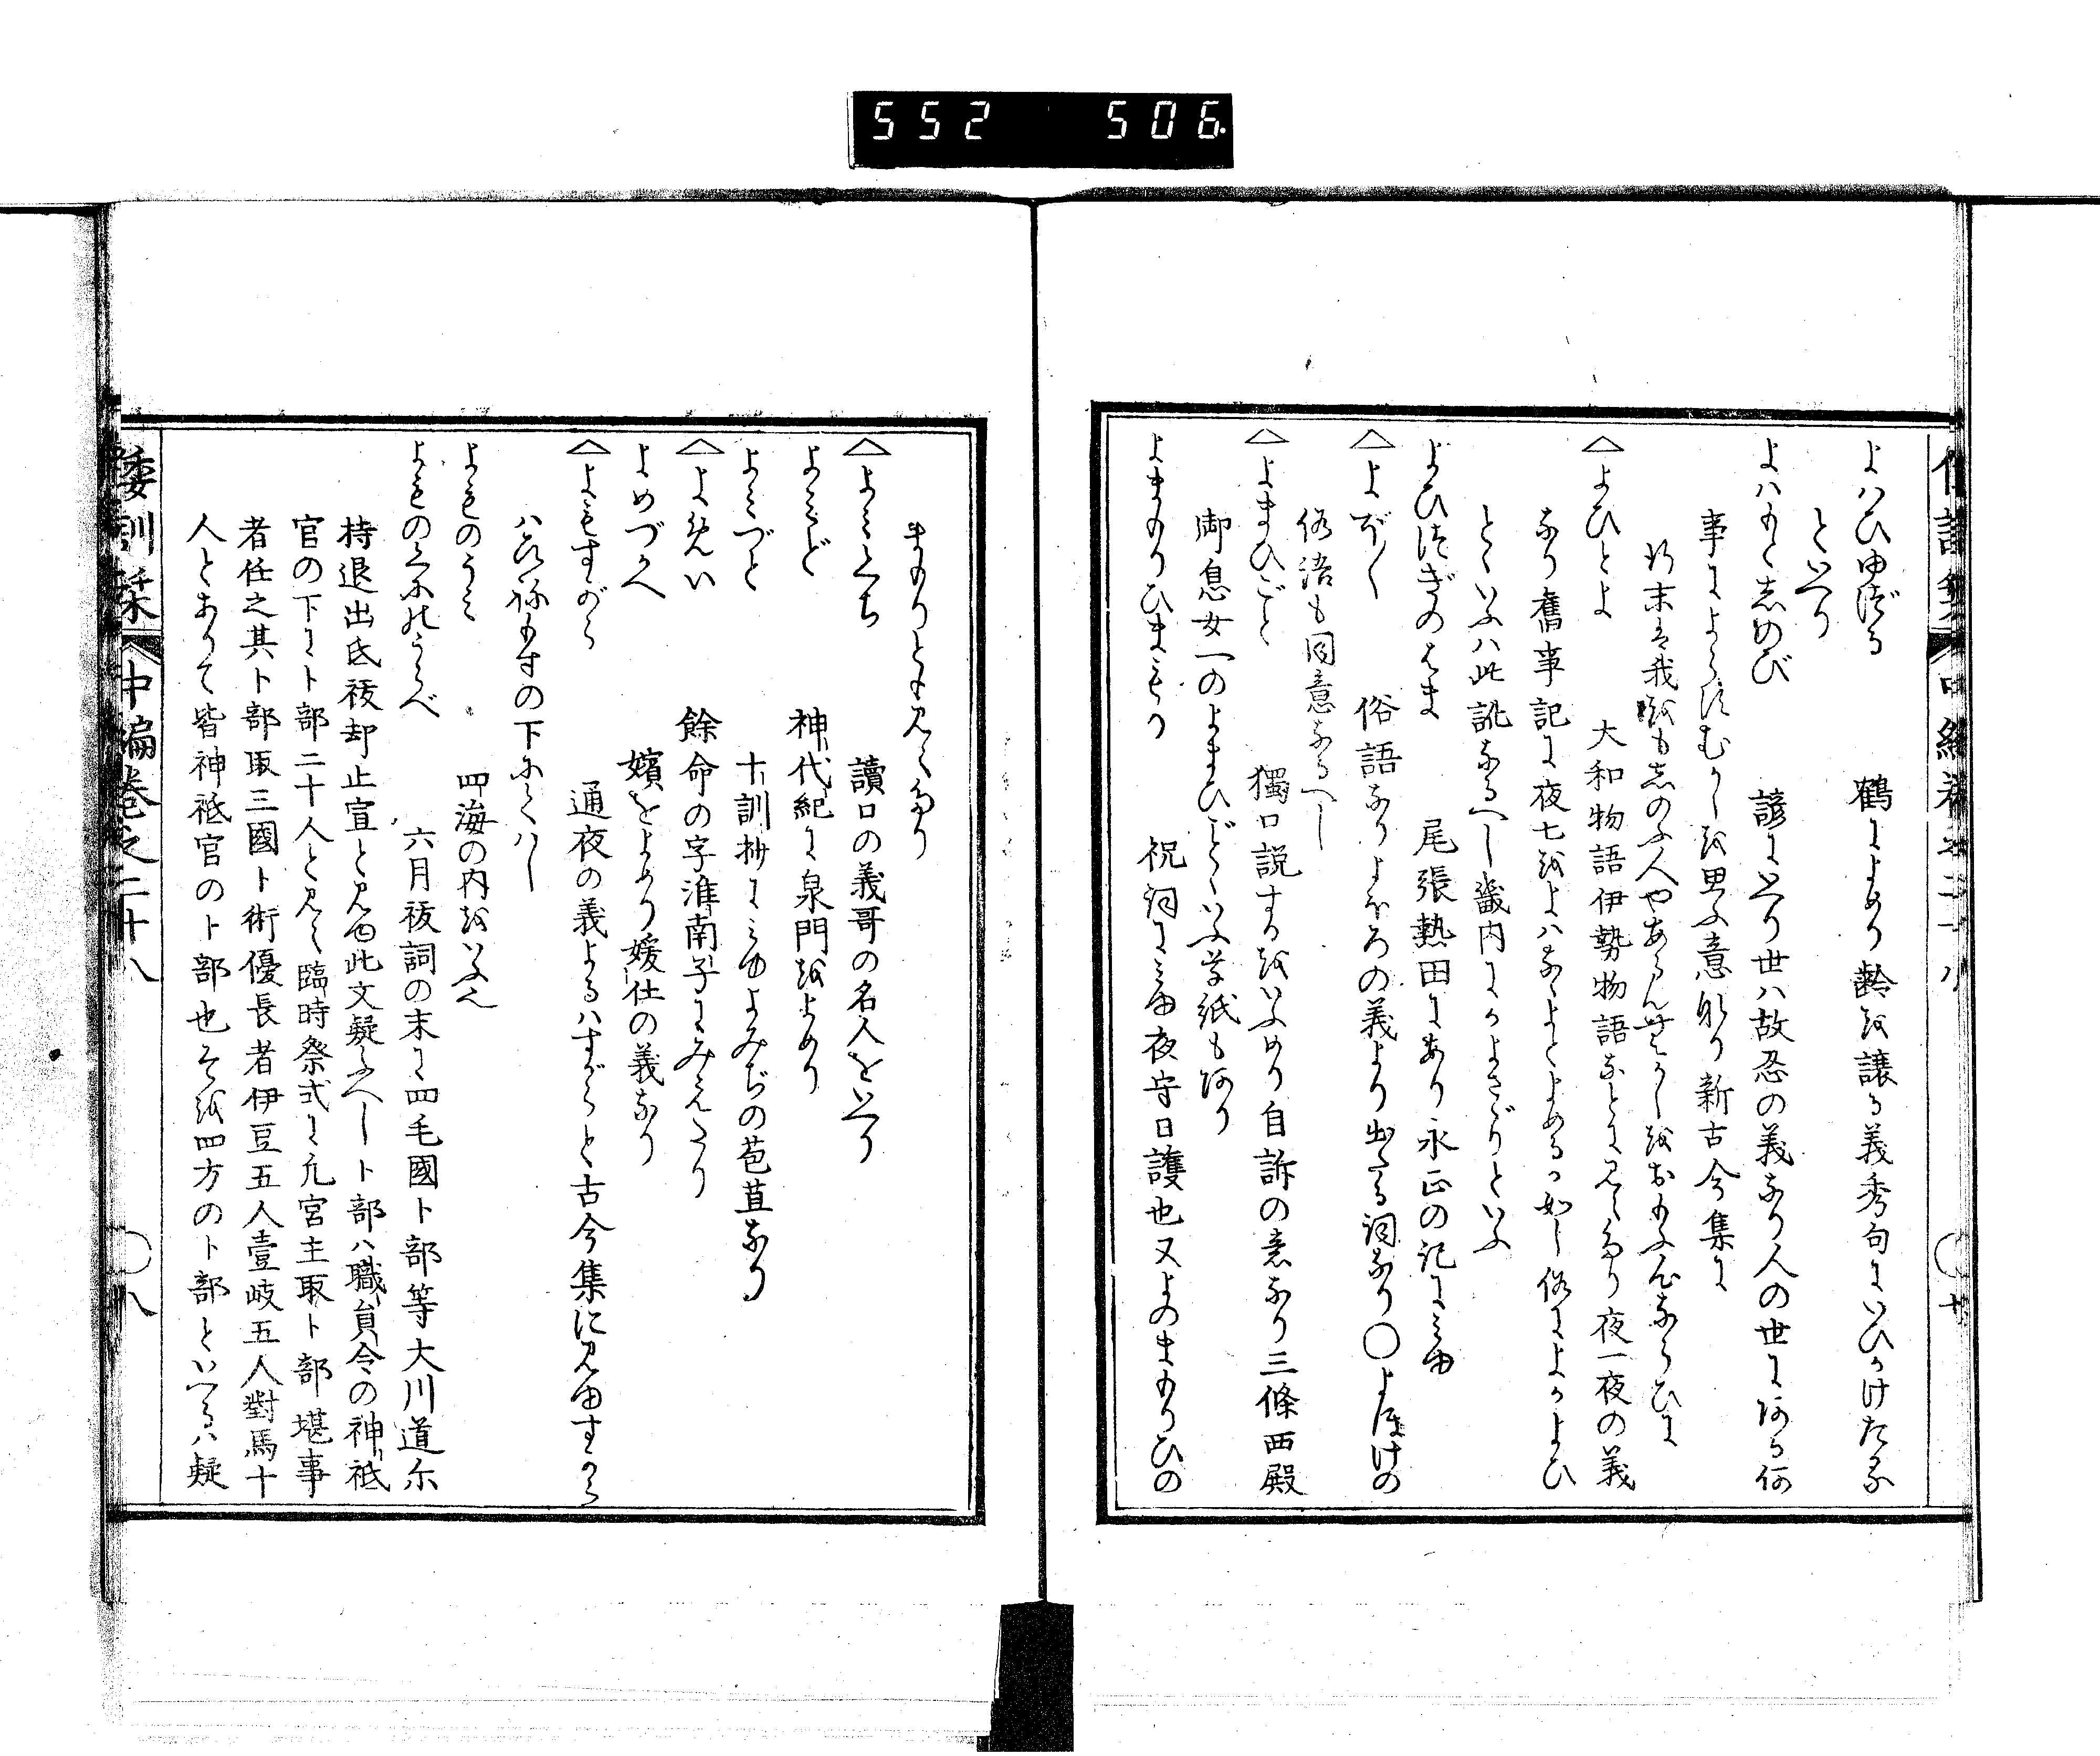 552 506
よはひゆずる　鶴によめり齢を譲る義秀句にいひかけたる
といへり
よはもと志のび　諺にいへり世ハ故忍の義なり人の世にある何
事によらずむかしを思ふ意なり新古今集に
行末は我をも志のふ人やあらんむかしをおもふ心ならひに
△よひとよ　大和物語伊勢物語などに見えたり夜一夜の義
なり舊事記に夜七をよハなゝよとよめるか如し俗によかよひ
とといふハ此訛なるへし畿内にかよさがりといふ
よひつぎのはま　尾張熱田にあり永正の記にミゆ
△よぼく　俗語なりよほろの義より出たる詞なり〇よぼけの
俗語も同意なるへし
△よまひごと　獨口説するをいふめり自訴の意なり三條西殿
御息女一のよまひごとゝいふ草紙もあり
よまもりひまもり　祝詞にミゆ夜守日護也又よのまもりひの
まもりとも見えたり
△よミくち　讀口の義哥の名人をいへり
よミど　神代紀に泉門をよめり
よミづと　十訓抄にミゆよみぢの苞苴なり
△よめい　餘命の字淮南子にみえたり
よめづかへ　嬪をよめり媛仕の義なり
△よもすがら　通夜の義よるハすがらと古今集に見ゆすから
ハひねもすの下にくハし
よものうミ　四海の内をいふ也
よものくにのうらべ　六月祓詞の末に四毛國卜部等大川道尓
持退出氐祓却止宣と見ゆ此文疑ふへし卜部ハ職員令の神祇
官の下に卜部二十人と見え臨時祭式に凡宮主取卜部堪事
者任之其卜部取三國卜術優長者伊豆五人壹岐五人對馬十
人とありて皆神祇官の卜部也そを四方の卜部といへるハ疑
倭訓栞　中編巻之二十八　〇八